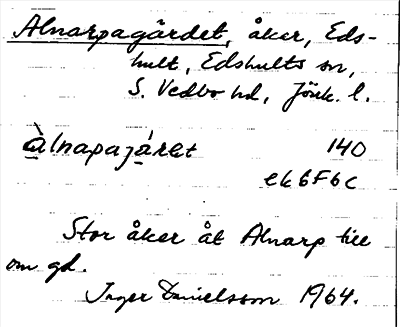 Alnarpagärdet, åker, Eds-
hult, Edshults sn,
S. Vedbo hd, Jönk. l.
Àlnapajáret 140
ek 6F6c
Stor åker åt Alnarp till
om gd.
Inger Danielsson 1964.